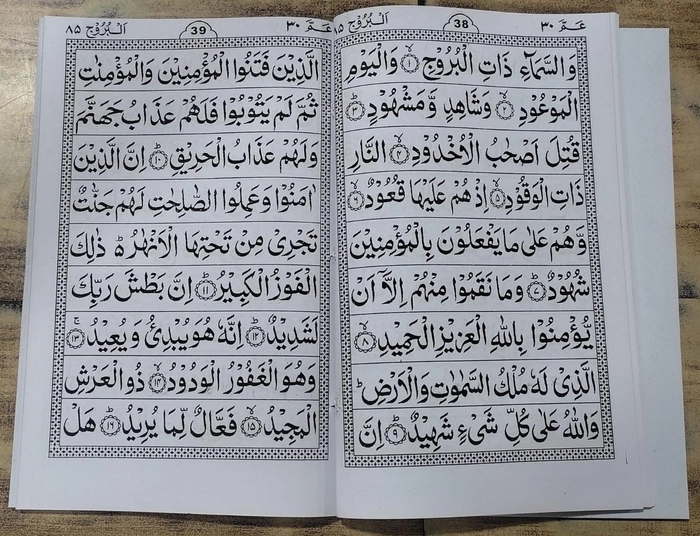 عـمّ ٣٠
38
اَلْبُرُوْج ٨٥
وَالسَّمَآءِ ذَاتِ الْبُرُوْجِ ﴿١﴾ وَالْيَوْمِ
الْمَوْعُوْدِ ﴿٢﴾ وَشَاهِدٍ وَّمَشْهُوْدٍ ﴿٣﴾
قُتِلَ اَصْحٰبُ الْاُخْدُوْدِ ﴿٤﴾ النَّارِ
ذَاتِ الْوَقُوْدِ ﴿٥﴾ اِذْ هُمْ عَلَيْهَا قُعُوْدٌ ﴿٦﴾
وَّهُمْ عَلٰى مَا يَفْعَلُوْنَ بِالْمُؤْمِنِيْنَ
شُهُوْدٌ ﴿٧﴾ وَمَا نَقَمُوْا مِنْهُمْ اِلَّآ اَنْ
يُّؤْمِنُوْا بِاللّٰهِ الْعَزِيْزِ الْحَمِيْدِ ﴿٨﴾
الَّذِىْ لَهٗ مُلْكُ السَّمٰوٰتِ وَالْاَرْضِ ؕ
وَاللّٰهُ عَلٰى كُلِّ شَىْءٍ شَهِيْدٌ ﴿٩﴾ اِنَّ
عـمّ ٣٠
39
اَلْبُرُوْج ٨٥
الَّذِيْنَ فَتَنُوا الْمُؤْمِنِيْنَ وَالْمُؤْمِنٰتِ
ثُمَّ لَمْ يَتُوْبُوْا فَلَهُمْ عَذَابُ جَهَنَّمَ
وَلَهُمْ عَذَابُ الْحَرِيْقِ ﴿١٠﴾ اِنَّ الَّذِيْنَ
اٰمَنُوْا وَعَمِلُوا الصّٰلِحٰتِ لَهُمْ جَنّٰتٌ
تَجْرِىْ مِنْ تَحْتِهَا الْاَنْهٰرُ ؕ ذٰلِكَ
الْفَوْزُ الْكَبِيْرُ ﴿١١﴾ اِنَّ بَطْشَ رَبِّكَ
لَشَدِيْدٌ ﴿١٢﴾ اِنَّهٗ هُوَ يُبْدِئُ وَيُعِيْدُ ﴿١٣﴾
وَهُوَ الْغَفُوْرُ الْوَدُوْدُ ﴿١٤﴾ ذُو الْعَرْشِ
الْمَجِيْدُ ﴿١٥﴾ فَعَّالٌ لِّمَا يُرِيْدُ ﴿١٦﴾ هَلْ